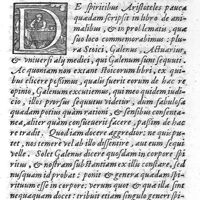 DE spiritibus Aristoteles pauca
quædam scripsit in libro de ani-
malibus, & in problematis, quæ
suo loco commemorabimus: plu
ra Stoici, Galenus, Actuarius,
& vniuersi alij medici, qui Galenum sunt sequuti.
Ac quoniam non extant Stoicorum libri, ex qui-
bus elicere possimus, quali fuerit eorum de hac re
opinio, Galenum excutiemus, qui meo quidem iu-
dicio, illos prorsus sequutus videtur, dum fabulosa
quædam potius quàm rationi, & sensibus consenta-
nea, aliter quàm consueuerit facere, passim de hac re
tradit. Quod iam docere aggrediar: ne quis pu-
tet, nos temerè vel ab illo dissentire, aut eum sequi
velle. Solet Galenus dicere quosdam in corpore spi
ritus, & nostram substantiam ex illis conflare, sed
nusquam id probat: ponit & genera quædam spi-
rituum esse in corpore: verum quot & quà illa sint
nequaquam docet: tribuit etiam singulo generi spi-